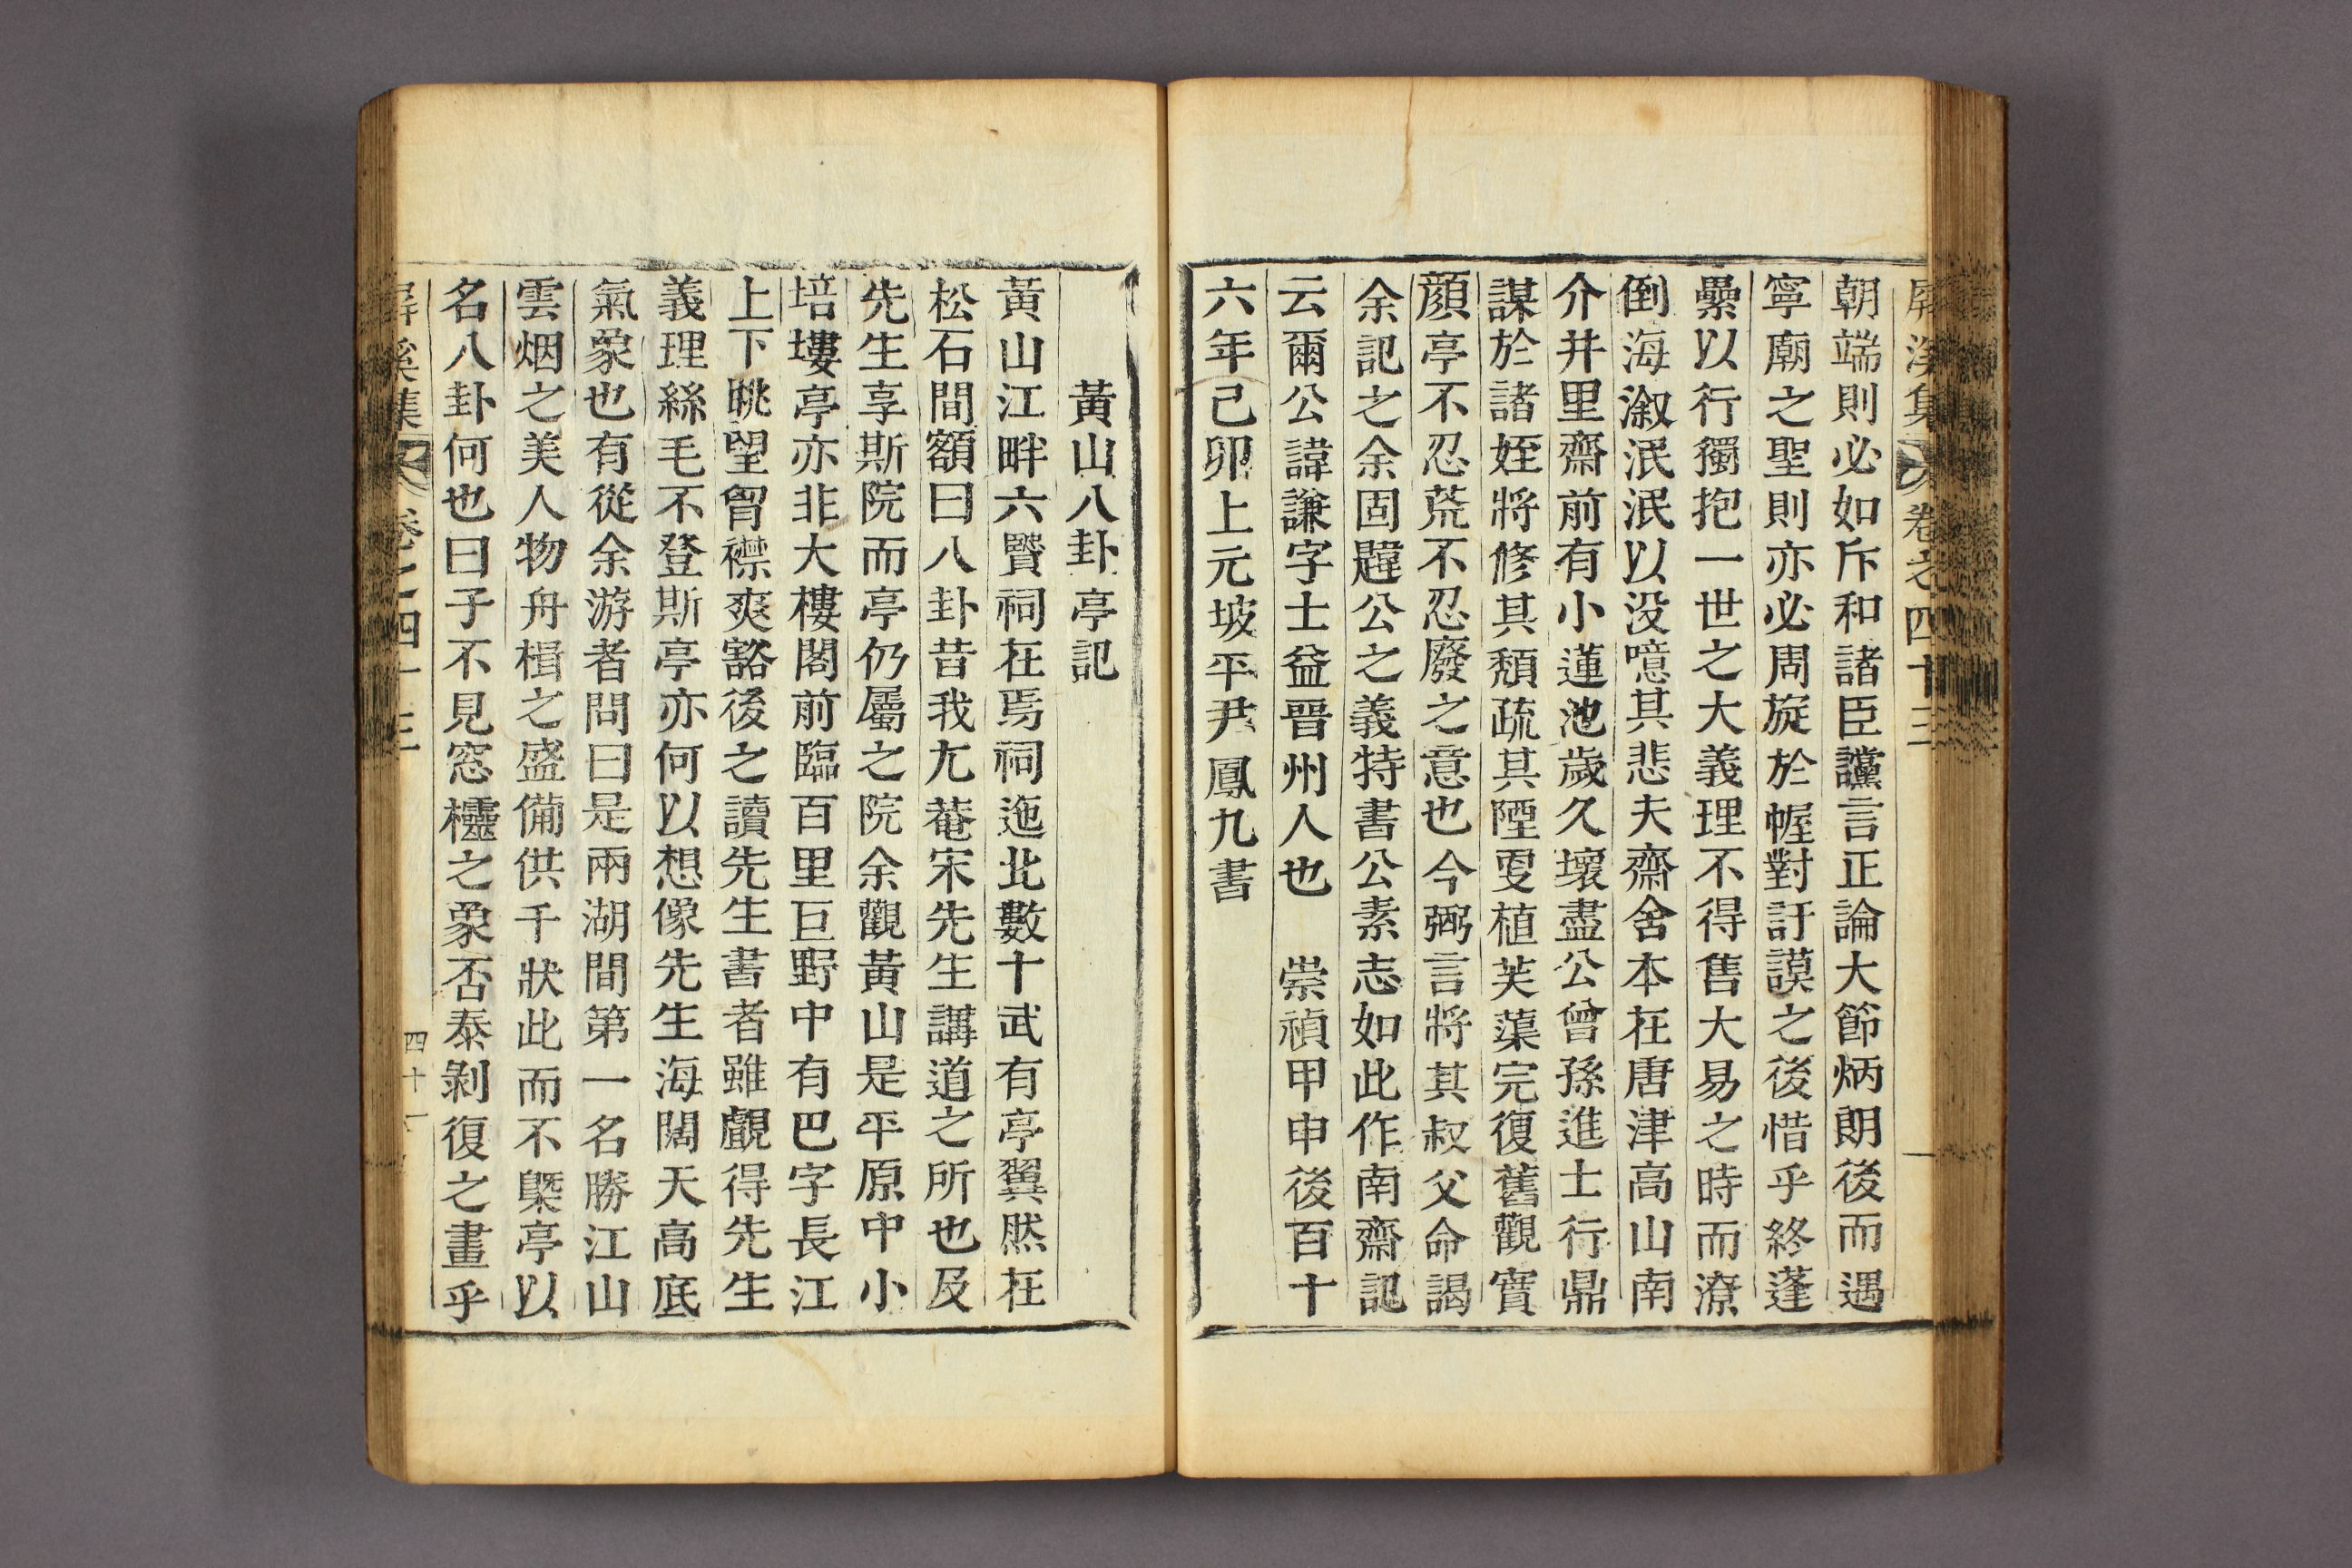 屛溪集 卷之四十三
朝端則必如斥和諸臣讜言正論大節炳朗後而遇
寧廟之聖則亦必周旋於幄對訏謨之後惜乎終蓬
纍以行獨抱一世之大義理不得售大易之時而潦
倒海溆泯泯以沒噫其悲夫齋舍本在唐津高山南
介井里齋前有小蓮池歲久壞盡公曾孫進士行鼎
謀於諸姪將修其頹疏其陻更植芙蕖完復舊觀實
顏亭不忍荒不忍廢之意也今弼言將其叔父命謁
余記之余固韙公之義特書公素志如此作南齋記
云爾公諱謙字士益晉州人也 崇禎甲申後百十
六年己卯上元坡平尹鳳九書
黃山八卦亭記
黃山江畔六賢祠在焉祠迤北數十武有亭翼然在
松石間額曰八卦昔我尤菴宋先生講道之所也及
先生享斯院而亭仍屬之院余觀黃山是平原中小
培塿亭亦非大樓閣前臨百里巨野中有巴字長江
上下眺望胷襟爽豁後之讀先生書者雖覰得先生
義理絲毛不登斯亭亦何以想像先生海闊天高底
氣象也有從余游者問曰是兩湖間第一名勝江山
雲烟之美人物舟楫之盛備供千狀此而不槩亭以
名八卦何也曰子不見窓櫺之象否泰剝復之畫乎
屛溪集 卷之四十三 四十一